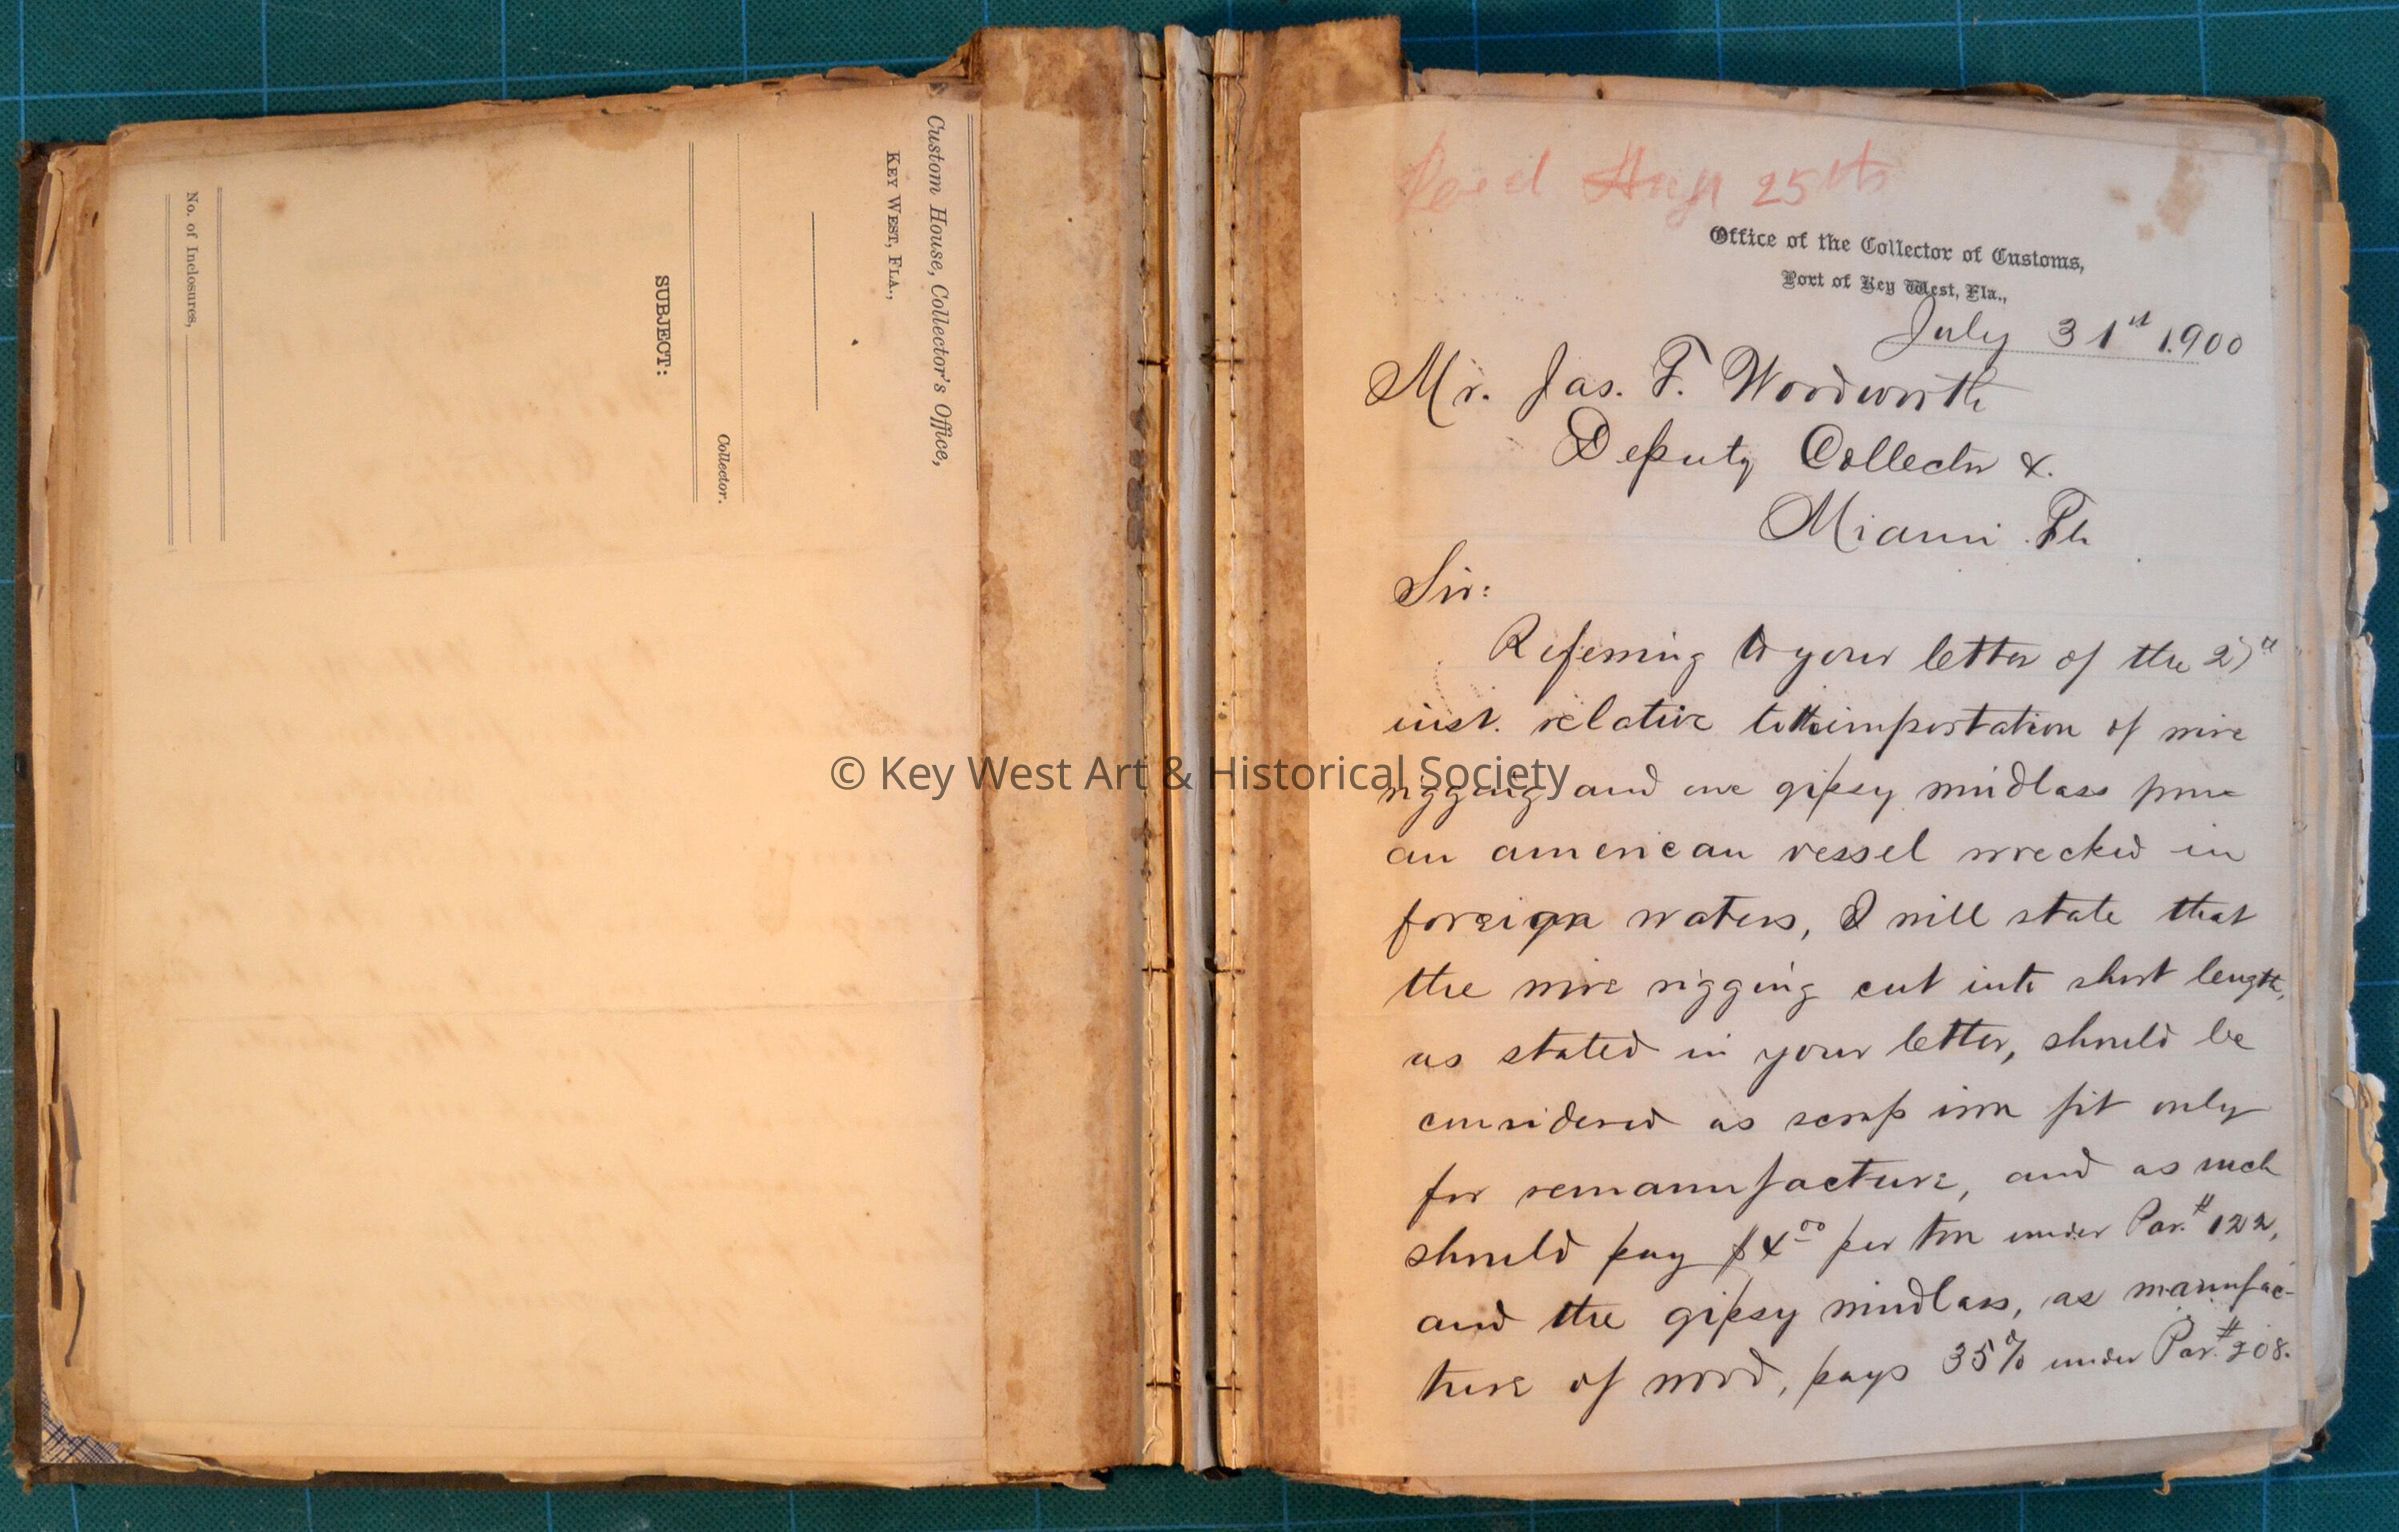 Custom House, Collector's Office,
KEY WEST, FLA.,
Collector.
SUBJECT:
No. of Inclosures,
Recd Aug 25th
Office of the Collector of Customs,
Port of Key West, Fla.,
July 31st 1900
Mr. Jas. F. Woodworth
Deputy Collector &.
Miami Fla
Sir:
Referring to your letter of the
inst. relative to the importation of wire
rigging and one gipsy windlass from
an american vessel wrecked in
foreign waters, I will state that
the wire rigging cut into short length,
as stated in your letter, should be
considered as scrap iron fit only
for remanufacture, and as such
should pay $4.00 per ton under Par. # 122,
and the gipsy windlass, as manufac-
ture of wood, pays 35% under Par. # 208.
© Key West Art & Historical Society